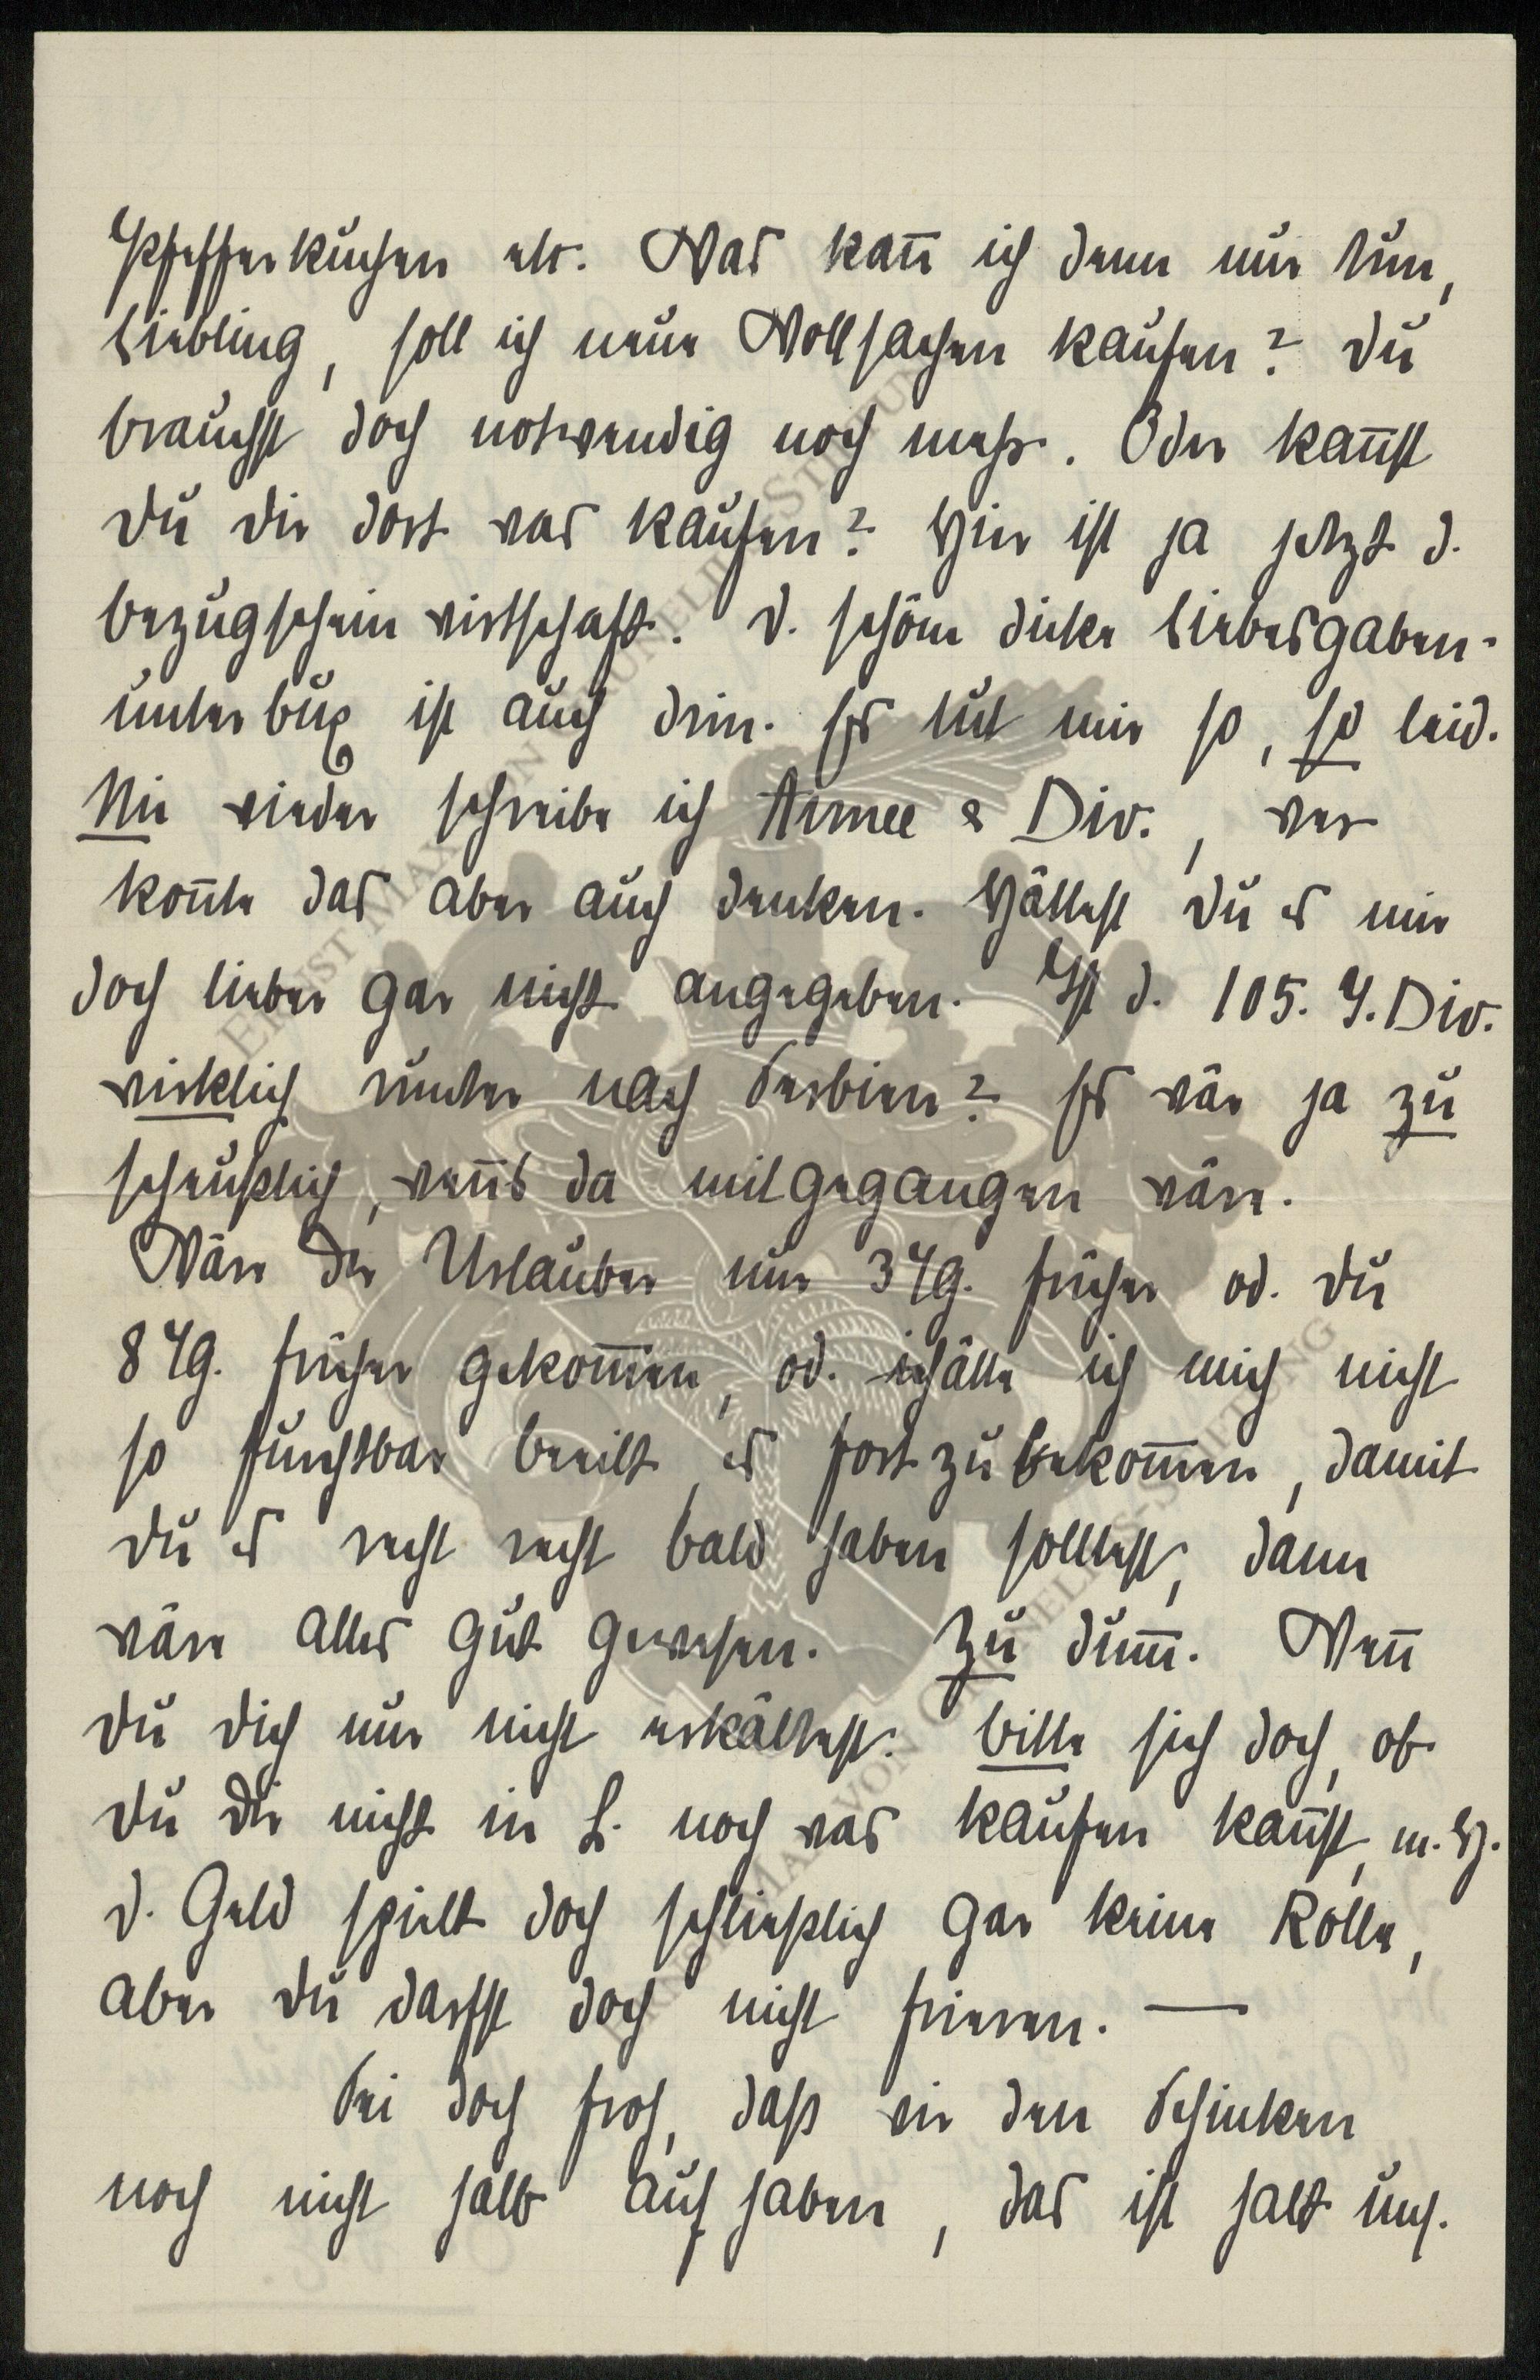 Pfefferkuchen etc. Was kann ich denn nur tun,
Liebling, soll ich neue Wollsachen kaufen? Du
brauchst doch notwendig noch mehr. Oder kannst
Du Dir dort was kaufen? Hier ist ja jetzt d.
Bezugscheinwirtschaft. D. schöne dicke Liebesgaben-
unterbux ist auch drin. Es tut mir so, so leid.
Nie wieder schreibe ich Armee & Div., wer
konnte das aber auch denken. Hättest Du es mir
doch lieber gar nicht angegeben. Ist d. 105. I. Div.
wirklich runter nach Serbien? Es wär ja zu
scheußlich, wenns da mitgegangen wäre.
Wäre der Urlauber nur 3 Tg. früher od. Du
8 Tg. früher gekommen, od. hätte ich mich nicht
so furchtbar beeilt es fortzubekommen, damit
Du es recht recht bald haben solltest, dann
wäre alles gut gewesen. Zu dumm. Wenn
Du Dich nur nicht erkältest. Bitte sieh doch, ob
Du Dir nicht in L. noch was kaufen kannst, m. H.
d. Geld spielt doch schließlich gar keine Rolle,
aber Du darfst doch nicht frieren. —
Sei doch froh, daß wir den Schinken
noch nicht halb auf haben, das ist halt uns.
ERNST MAX VON GRUNELIUS-STIFTUNG
ERNST MAX VON GRUNELIUS-STIFTUNG